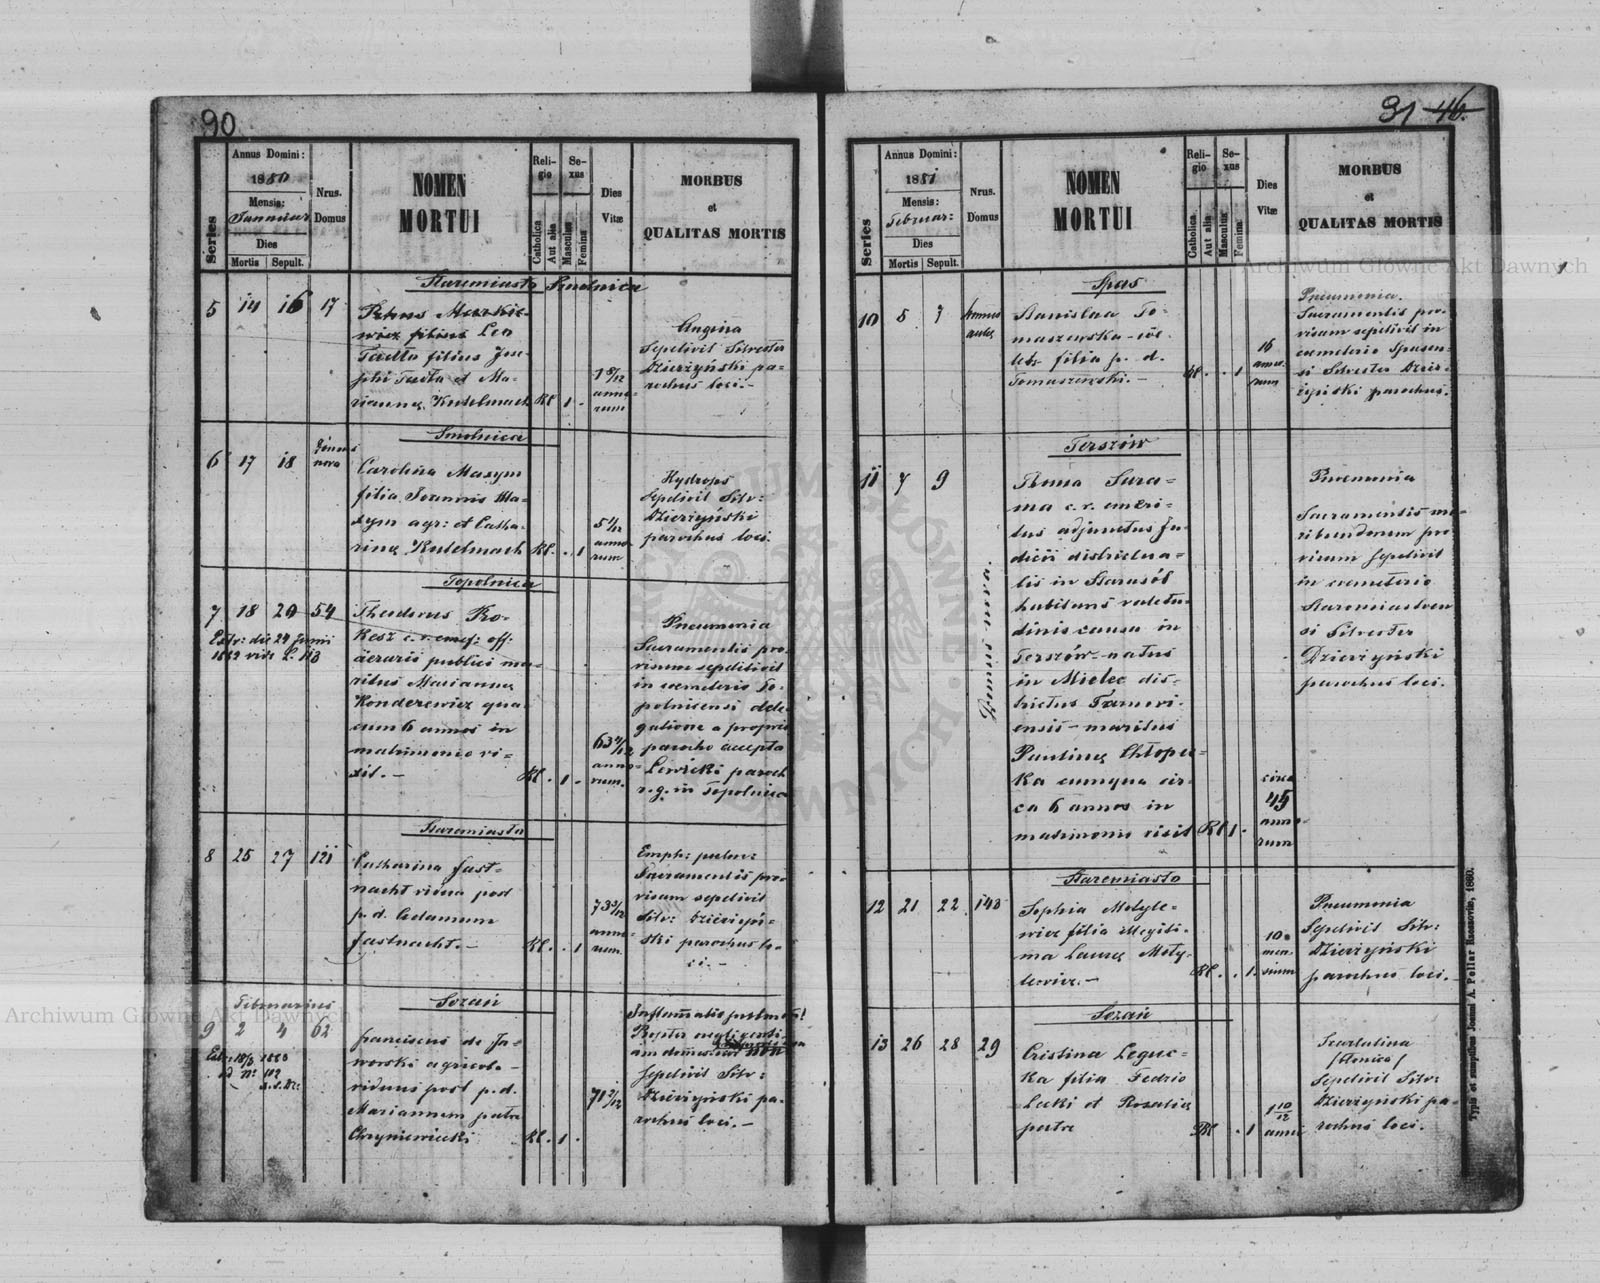 90
Series
Annus Domini:
1881
Mensis:
Januuar
Dies
Mortis Sepult.
Nrus. Domus
NOMEN MORTUI
Religio
Catholica
Aut alia
Sexus
Masculus
Femina
Dies Vitæ
MORBUS
et
QUALITAS MORTIS
Staremiasto Smolnica
5 14 16 17
filius Leo
filius Jose-
phi et Ma-
riannæ Kutelmach Rl 1 -
anno-
rum
Angina
Sepelivit Silvester
Dzierżyński pa-
rochus loci.-
Smolnica
6 17 18 Domus
nova
Carolina Maxym
filia Joannis Ma-
xym agr: et Catha-
rinæ Kutelmach Rl. . 1
anno-
rum
Hydrops
Sepelivit Silv:
Dzierżyński
parochus loci.
Topolnica
7 18 20 54
Extr: die 24 Junii
Theodorus Ro-
kesz c. r. emer: off.
aeraris publici ma-
ritus Mariannæ
Konderewicz qua-
cum 6 annos in
matrimonio vi-
xit.- Rl. . 1 -
63 4/12
anno-
rum.
Pneumonia
Sacramentis pro-
visum sepelivit
in cœmeterio To-
polnicensi dele-
gatione a proprio
parocho accepta
Lewicki paroch
r. g. in Topolnica
Staremiasto
8 25 27 121
Catharina Fast-
nacht vidua post
p. d. Adamum
Fastnacht.- Rl. . . 1
73 3/12
anno-
rum.
Emph: pulm:
Sacramentis pro-
visam sepelivit
Silv: Dzierżyń-
ski parochus lo-
ci.-
Sozań
Februarius
9 2 4 62
Franciscus de Ja-
worski agricola -
viduus post p. d.
Mariannam
Rl. . 1 -
71 2/12
Inflamatio pulmon:!
Propter negligenti-
am
Sepelivit Silv:
Dzierżyński pa-
rochus loci.-
91 46.
Series
Annus Domini:
1881
Mensis:
Februar:
Dies
Mortis Sepult.
Nrus. Domus
NOMEN MORTUI
Religio
Catholica
Aut alia
Sexus
Masculus
Femina
Dies Vitæ
MORBUS
et
QUALITAS MORTIS
Spas
10 5 7 Domus
aulæ
Stanislaa To-
maszewska -
filia p. d.
Tomaszewski.- Rl. . . 1
16
anno-
rum
Pneumonia.
Sacramentis pro-
visam sepelivit in
cœmeterio Spasen-
si Silvester Dzier-
żyński parochus.
Terszów
11 7 9 Domus nova.
Thoma Sura-
ma c. r. emeri-
tus adjunctus Ju-
dicii districtua-
lis in Starasól
habitans valetu-
dinis causa in
Terszów - natus
in Mielec dis-
trictus Tarnovi-
ensis - maritus
Paulinæ Chłopec-
ka cumqua cir-
ca 6 annos in
matrimonio vixit Rl 1 -
circa
45
anno-
rum
Pneumonia
Sacramentis mo-
ribundorum pro-
visum sepelivit
in cœmeterio
Staromiasten-
si Silvester
Dzierżyński
parochus loci.
Staremiasto
12 21 22 148
Sophia Motyle-
wicz filia illegiti-
ma Lauræ Moty-
lewicz.- Rl. . . 1.
10
men-
sium
Pneumonia
Sepelivit Silv:
Dzierżyński
parochus loci.-
Sozań
13 26 28 29
Cristina Leguc-
ka filia Fedrio
Lecki et Rosaliæ
patre Rl . 1
1 10/12
anni
Scarlatina
Sepelivit Silv:
Dzierżyński pa-
rochus loci.
Typis et sumptibus Joanni A. Pellar Resoviæ, 1860.
Archiwum Główne Akt Dawnych
Archiwum Główne Akt Dawnych